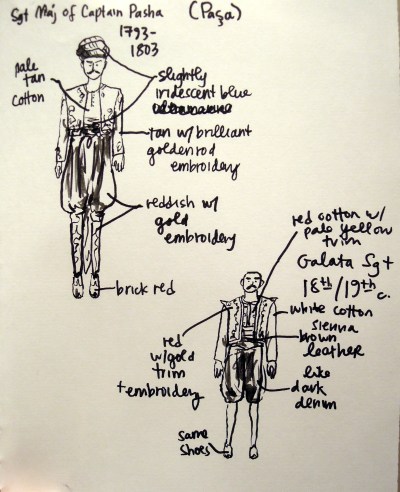 Sgt Maj of Captain Pasha
(Paşa)
1793-
1803
pale
tan
cotton
slightly
iridescent blue
tan w/ brilliant
goldenrod
embroidery
reddish w/
gold
embroidery
brick red
red cotton w/
pale yellow
trim
Galata Sgt
18th/19th
c.
white cotton
sienna
brown
leather
red
w/gold
trim
+ embroidery
like
dark
denim
same
shoes